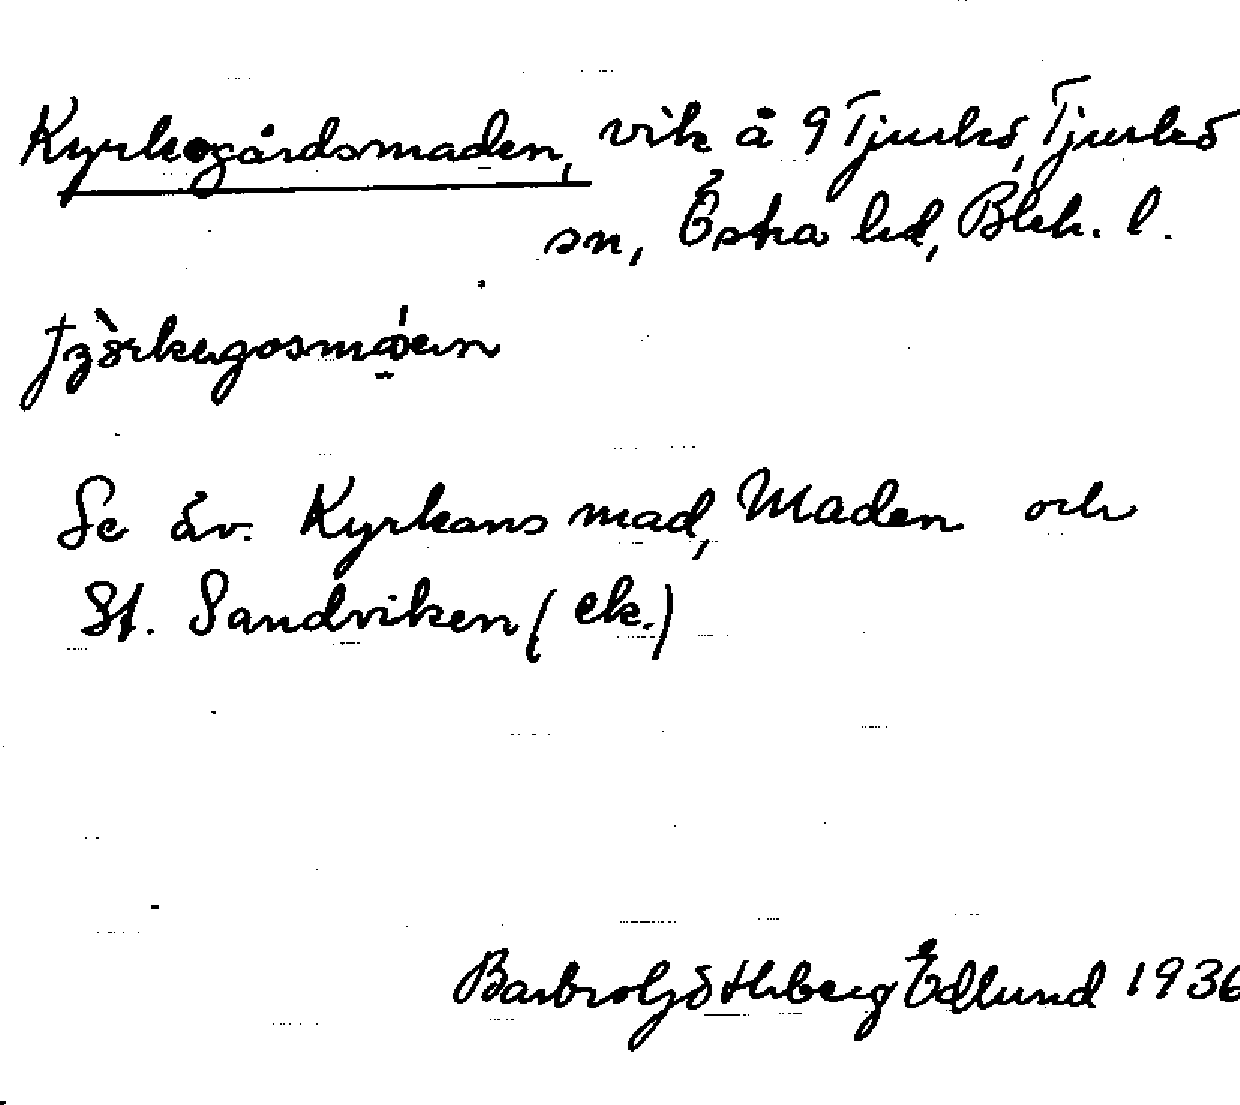 Kyrkogårdsmaden, vik å 9 Tjurkö, Tjurkö
sn, Östra hd, Blek. l.
Se äv. Kyrkans mad, Maden och
St. Sandviken (ek.)
Barbro Göthberg Edlund 1936